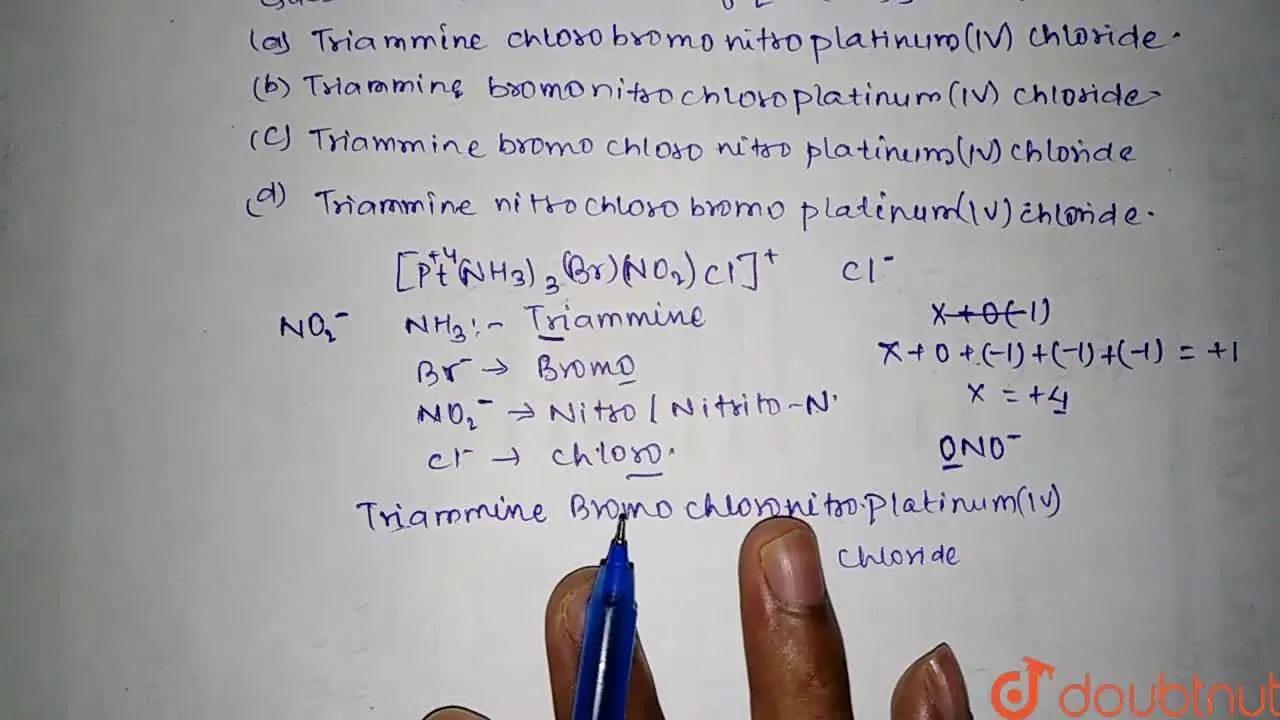 (a) Triammine chlorobromonitroplatinum(IV) chloride.
(b) Triammine bromonitrochloroplatinum(IV) chloride
(c) Triammine bromochloronitroplatinum(IV) chloride
(d) Triammine nitrochlorobromoplatinum(IV) chloride.
[Pt⁺⁴(NH3)3(Br)(NO2)Cl]⁺ Cl⁻
NO2⁻ NH3:- Triammine
Br⁻ → Bromo
NO2⁻ → Nitro / Nitrito-N.
Cl⁻ → chloro.
x+0(-1)
x+0+(-1)+(-1)+(-1) = +1
x = +4
ONO⁻
Triammine Bromochloronitro.platinum(IV)
chloride
doubtnut